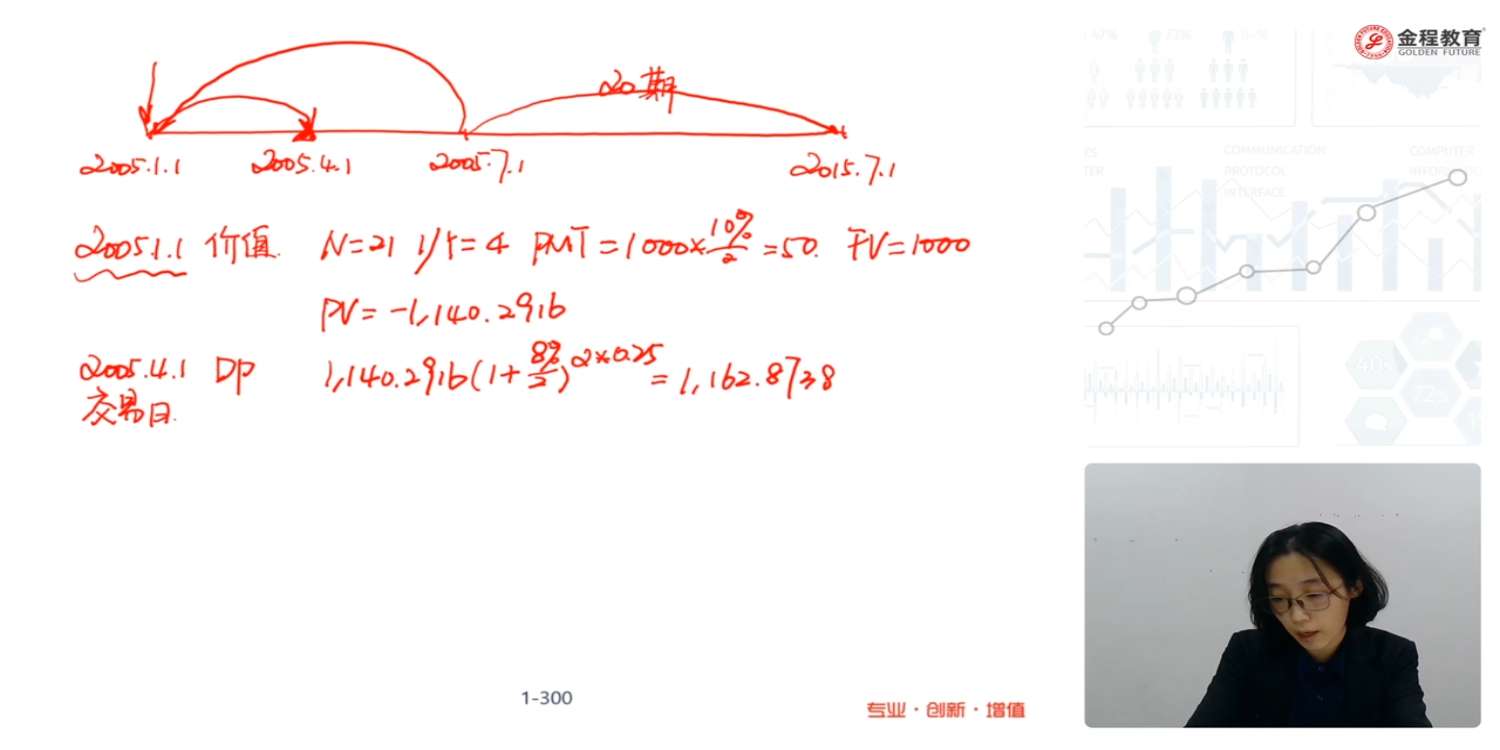 金程教育
GOLDEN FUTURE
20期
2005.1.1 2005.4.1 2005.7.1 2015.7.1
2005.1.1 价值. N=21 I/Y=4 PMT=1000×10%/2=50. FV=1000
PV=-1,140.2916
2005.4.1 DP 1,140.2916(1+8%/2)^2×0.25=1,162.8738
交易日.
COMMUNICATION
PROTOCOL
INTERFACE
COMPUTER
40%
72%
1-300
专业·创新·增值